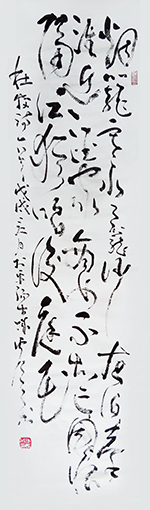 烟籠寒水月籠沙夜泊秦
淮近酒家商女不知亡國恨
隔江猶唱後庭花
杜牧詩一首戊戌